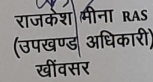 राजकेश मीना RAS
(उपखण्ड अधिकारी)
खींवसर